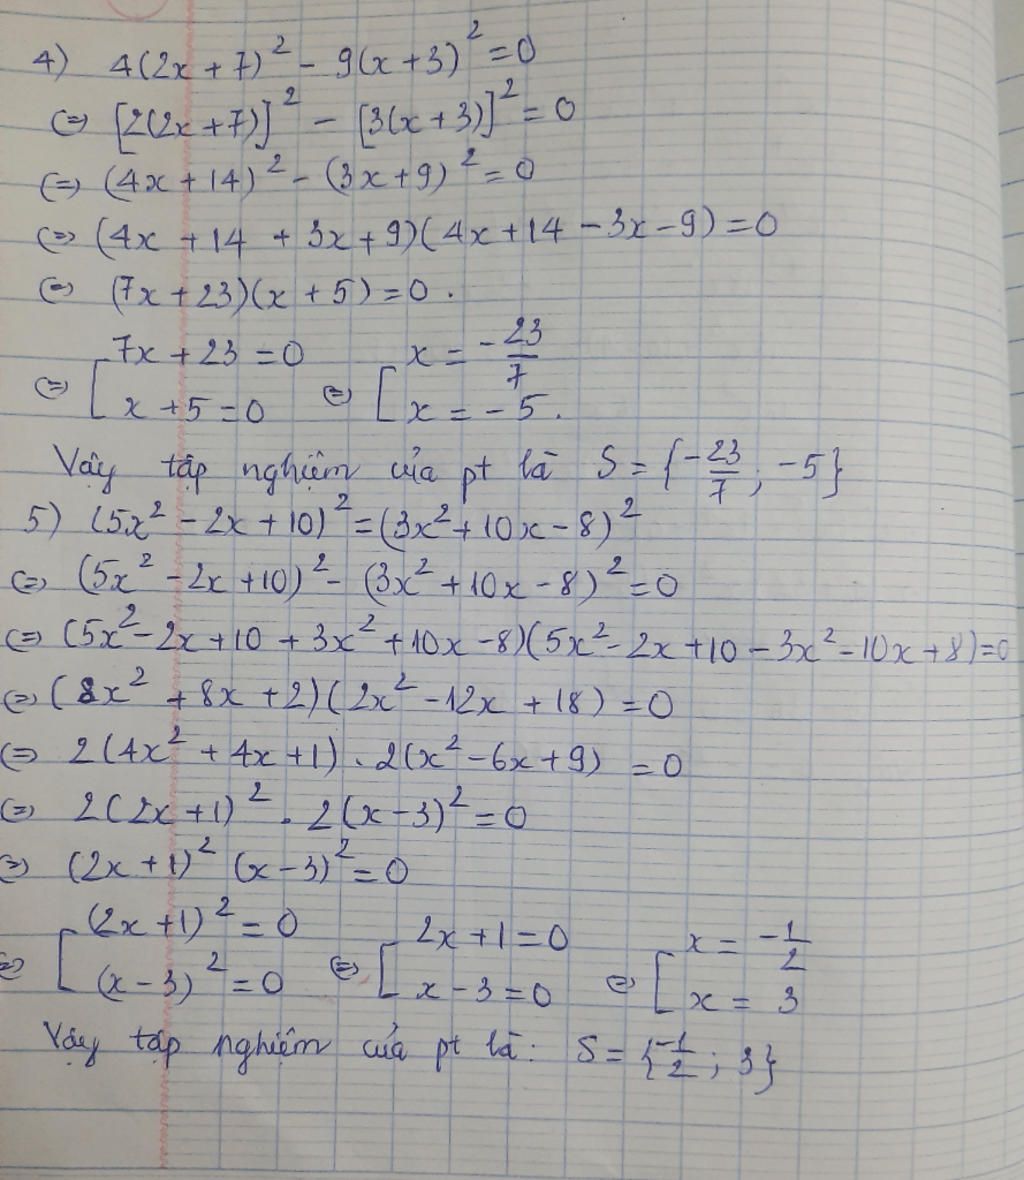 4) 4(2x + 7)² - 9(x + 3)² = 0
(=) [2(2x + 7)]² - [3(x + 3)]² = 0
(=) (4x + 14)² - (3x + 9)² = 0
(=) (4x + 14 + 3x + 9)(4x + 14 - 3x - 9) = 0
(=) (7x + 23)(x + 5) = 0.
(=) [ 7x + 23 = 0 ; x + 5 = 0 (=) [ x = -23/7 ; x = -5.
Vậy tập nghiệm của pt là S = {-23/7; -5}
5) (5x² - 2x + 10)² = (3x² + 10x - 8)²
(=) (5x² - 2x + 10)² - (3x² + 10x - 8)² = 0
(=) (5x² - 2x + 10 + 3x² + 10x - 8)(5x² - 2x + 10 - 3x² - 10x + 8) = 0
(=) (8x² + 8x + 2)(2x² - 12x + 18) = 0
(=) 2(4x² + 4x + 1) . 2(x² - 6x + 9) = 0
(=) 2(2x + 1)² . 2(x - 3)² = 0
(=) (2x + 1)² (x - 3)² = 0
(=) [ (2x + 1)² = 0 ; (x - 3)² = 0 (=) [ 2x + 1 = 0 ; x - 3 = 0 (=) [ x = -1/2 ; x = 3
Vậy tập nghiệm của pt là: S = {-1/2; 3}